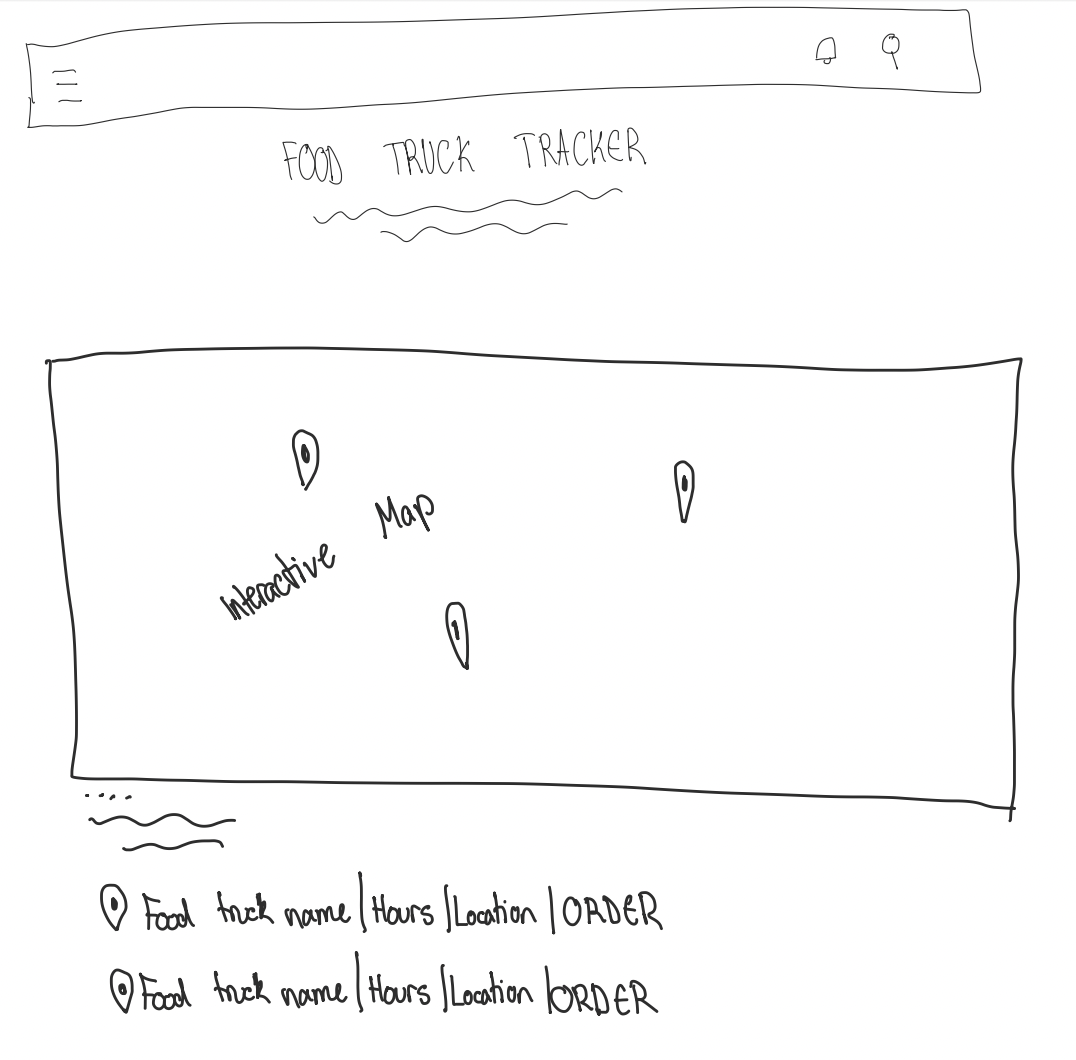 FOOD TRUCK TRACKER
Map
Interactive
Food truck name | Hours | Location | ORDER
Food truck name | Hours | Location | ORDER